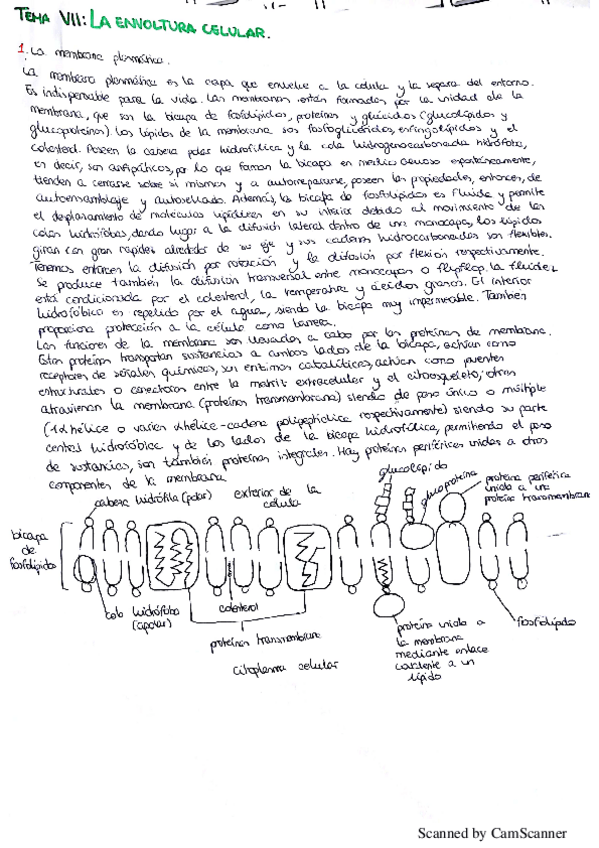 TEMA VII: LA ENVOLTURA CELULAR.
1. La membrana plasmática.
La membrana plasmática es la capa que envuelve a la célula y la separa del entorno.
Es indispensable para la vida. Las membranas están formadas por la unidad de la
membrana, que son la bicapa de fosfolípidos, proteínas y glúcidos (glucolípidos y
glucoproteínas) los lípidos de la membrana son fosfoglicéridos, esfingolípidos y el
colesterol. Poseen la cabeza polar hidrofílica y la cola hidrogenocarbonada hidrófoba,
es decir, son anfipáticos, por lo que forman la bicapa en medio acuoso espontáneamente,
tienden a cerrarse sobre si mismas y a autorrepararse, poseen las propiedades, entonces, de
autoensamblaje y autosellado. Además, la bicapa de fosfolípidos es fluida y permite
el desplazamiento de moléculas lipídicas en su interior debido al movimiento de las
colas hidrófobas, dando lugar a la difusión lateral dentro de una monocapa, los lípidos
giran con gran rapidez alrededor de su eje y sus cadenas hidrocarbonadas son flexibles.
Tenemos entonces la difusión por rotación y la difusión por flexión respectivamente.
Se produce también la difusión transversal entre monocapas o flip-flop. La fluidez
está condicionada por el colesterol, la temperatura y ácidos grasos. El interior
hidrofóbico es repelido por el agua, siendo la bicapa muy impermeable. También
proporciona protección a la célula como barrera.
Las funciones de la membrana son llevadas a cabo por las proteínas de membrana.
Estas proteínas transportan sustancias a ambos lados de la bicapa, actúan como
receptores de señales químicas, son enzimas catalíticas, actúan como puentes
estructurales o conectores entre la matriz extracelular y el citoesqueleto; otras
atraviesan la membrana (proteínas transmembrana) siendo de paso único o múltiple
(1 α hélice o varias α hélice-cadena polipeptídica respectivamente) siendo su parte
central hidrofóbica y de los lados de la bicapa hidrofílica, permitiendo el paso
de sustancias, son también proteínas integrales. Hay proteínas periféricas unidas a otros
componentes de la membrana
glucolípido
cabeza hidrófila (polar)
exterior de la
célula
glucoproteína
proteína periférica
unida a una
proteína transmembrana
bicapa
de
fosfolípidos
cola hidrófoba
(apolar)
colesterol
proteínas transmembrana
citoplasma celular
proteína unida a
la membrana
mediante enlace
covalente a un
lípido
fosfolípido
Scanned by CamScanner